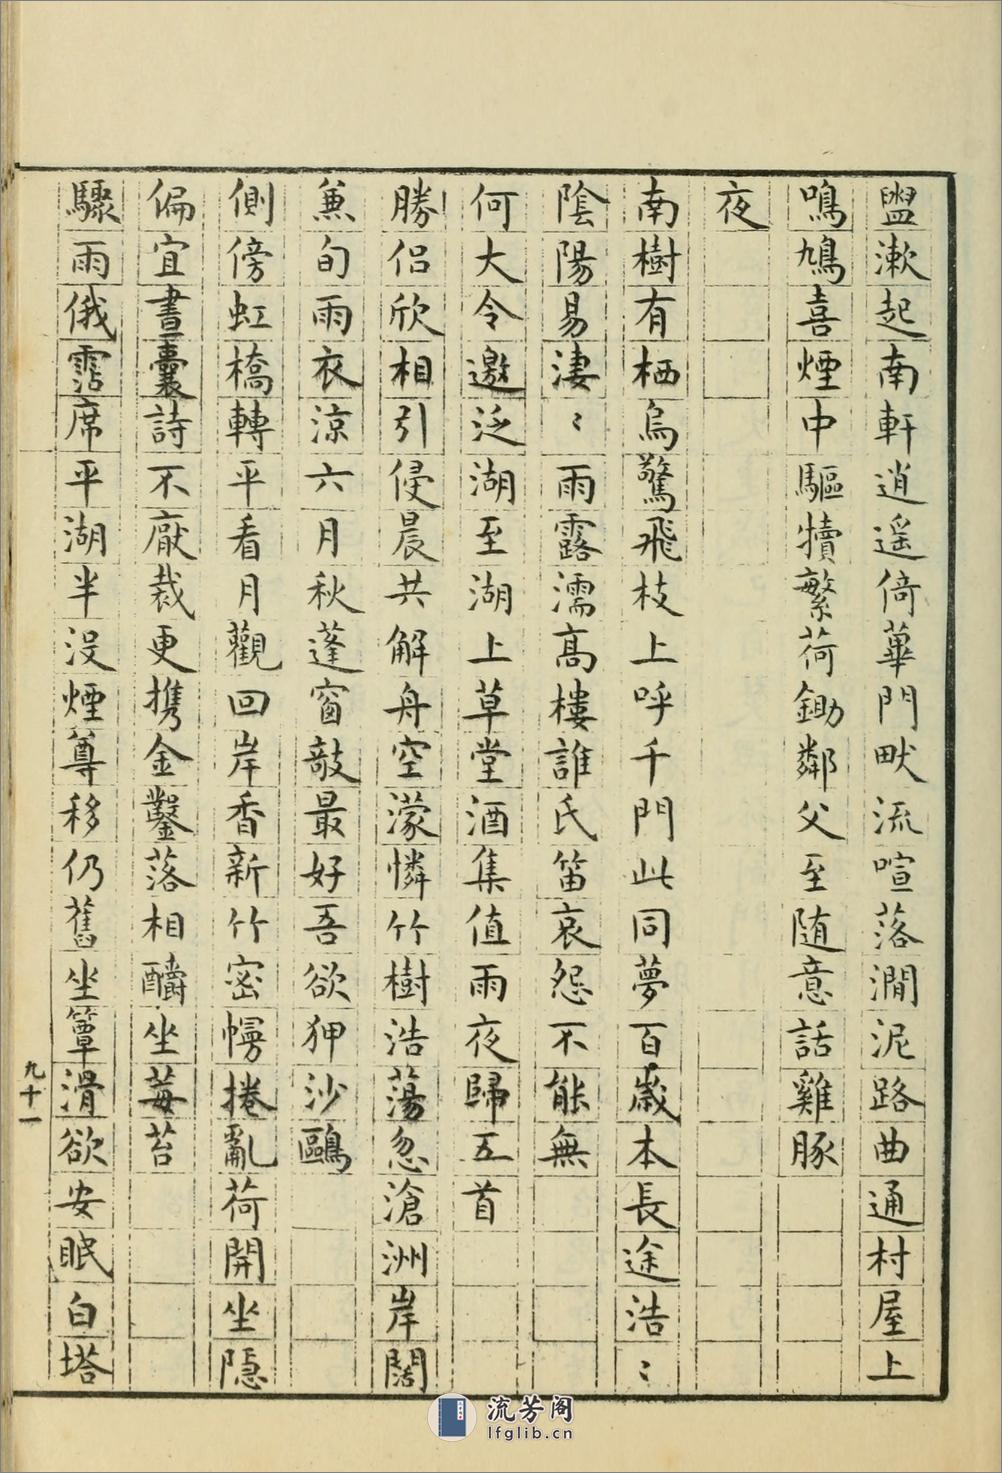 盥漱起南軒逍遥倚蓽門畎流喧落澗泥路曲通村屋上
鳴鳩喜煙中驅犢繁荷鋤鄰父至随意話雞豚
夜
南樹有栖烏驚飛枝上呼千門此同夢百歲本長途浩〻
陰陽易淒〻雨露濡高樓誰氏笛哀怨不能無
何大令邀泛湖至湖上草堂酒集值雨夜歸五首
勝侣欣相引侵晨共解舟空濛憐竹樹浩蕩忽滄洲岸闊
兼旬雨衣涼六月秋蓬窗敲最好吾欲狎沙鷗
側傍虹橋轉平看月觀回岸香新竹密幔捲亂荷開坐隱
偏宜畫囊詩不厭裁更携金鑿落相酹坐莓苔
驟雨俄霑席平湖半没煙尊移仍舊坐簟滑欲安眠白塔
九十一
流芳阁
lfglib.cn